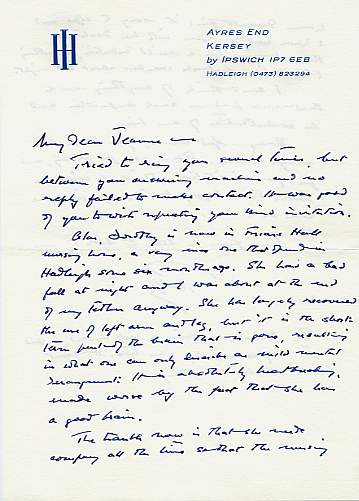 HI
AYRES END
KERSEY
by IPSWICH IP7 6EB
HADLEIGH (0473) 823294
My Dear Jeanne
Tried to ring you several times, but
between your answering machine and no
reply failed to make contact. It was good
of you to write repeating your kind invitation.
Alas, Dorothy is now in Friars Hall
nursing home, a very nice one that I found in
Hadleigh some six months ago. She had a bad
fall at night and I was about at the end
of my tether anyway. She has largely recovered
the use of left arm and leg, but it is the short
term part of the brain that is gone, resulting
in what one can only describe as mild mental
derangement. It is absolutely heartbreaking,
made worse by the fact that she has
a good brain.
The trouble now is that she needs
company all the time so that the nursing